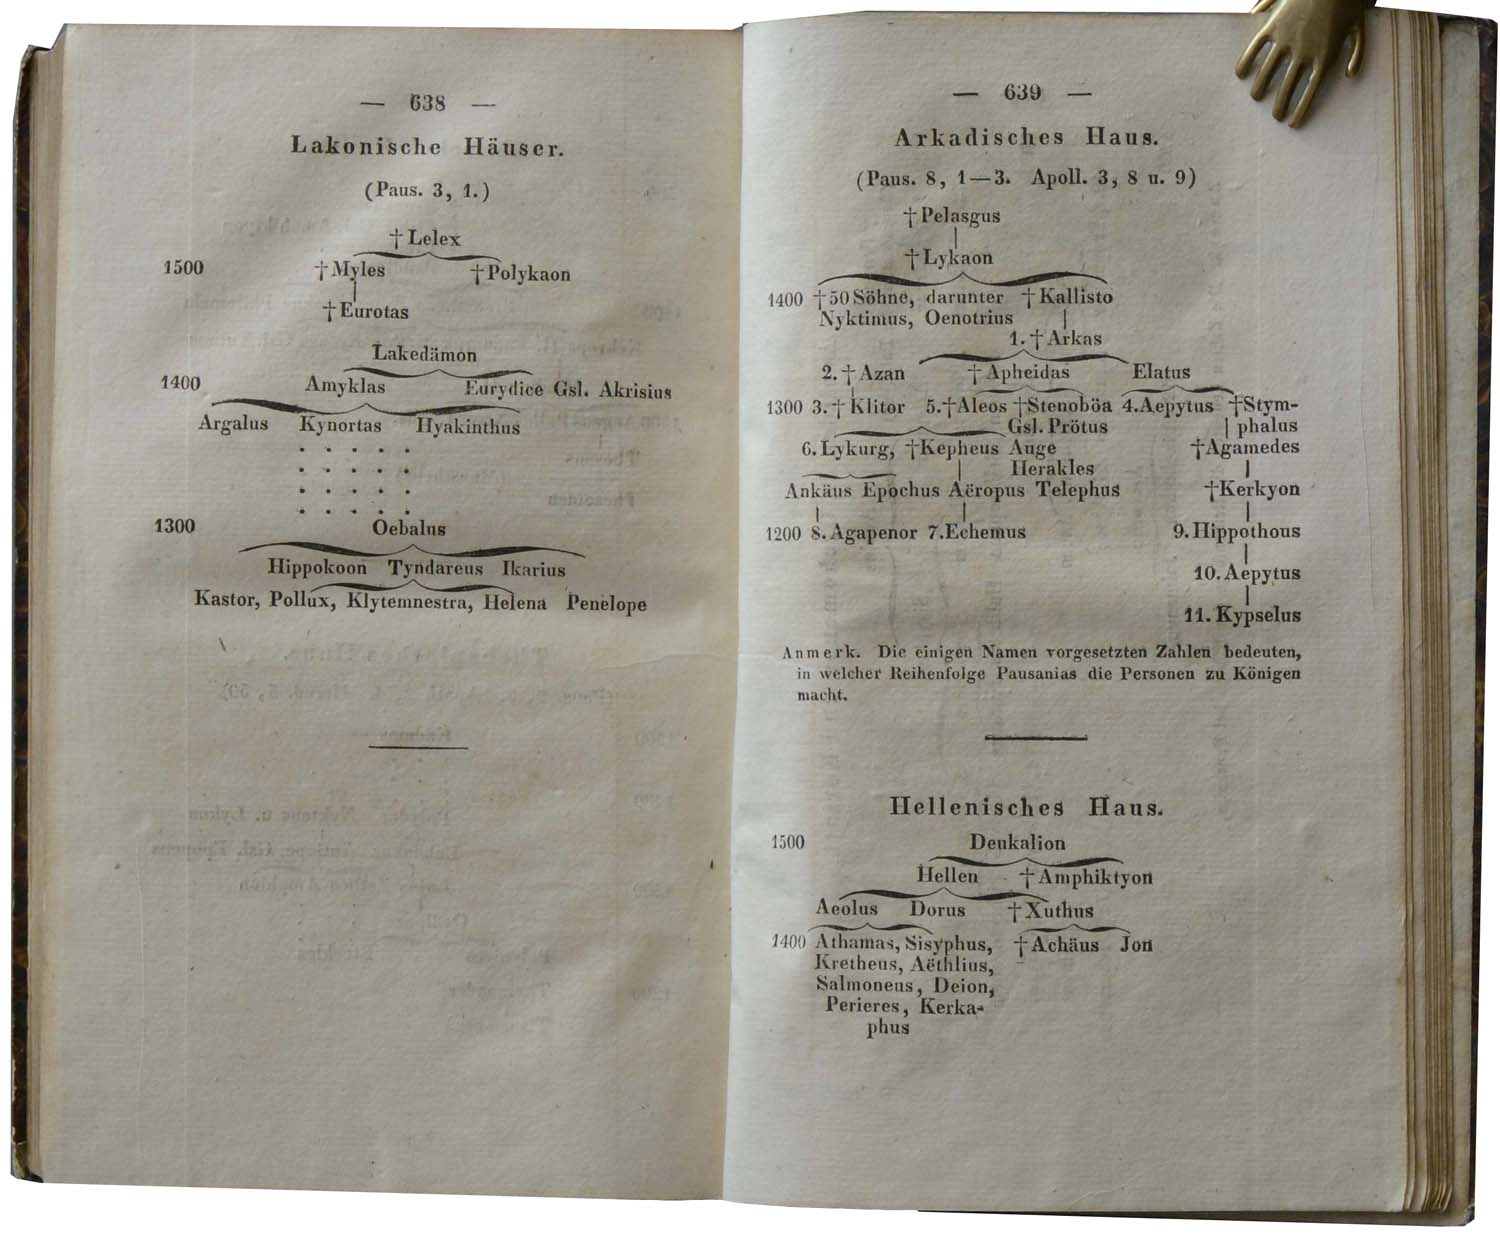 — 638 —
Lakonische Häuser.
(Paus. 3, 1.)
†Lelex
1500 †Myles †Polykaon
†Eurotas
Lakedämon
1400 Amyklas Eurydice Gsl. Akrisius
Argalus Kynortas Hyakinthus
1300 Oebalus
Hippokoon Tyndareus Ikarius
Kastor, Pollux, Klytemnestra, Helena Penelope
— 639 —
Arkadisches Haus.
(Paus. 8, 1—3. Apoll. 3, 8 u. 9)
†Pelasgus
†Lykaon
1400 †50 Söhne, darunter †Kallisto
Nyktimus, Oenotrius
1. †Arkas
2. †Azan †Apheidas Elatus
1300 3. †Klitor 5. †Aleos †Stenoböa 4. Aepytus †Stym-
Gsl. Prötus phalus
6. Lykurg, †Kepheus Auge †Agamedes
Herakles
Ankäus Epochus Aëropus Telephus †Kerkyon
1200 8. Agapenor 7. Echemus 9. Hippothous
10. Aepytus
11. Kypselus
Anmerk. Die einigen Namen vorgesetzten Zahlen bedeuten,
in welcher Reihenfolge Pausanias die Personen zu Königen
macht.
Hellenisches Haus.
1500 Deukalion
Hellen †Amphiktyon
Aeolus Dorus †Xuthus
1400 Athamas, Sisyphus, †Achäus Jon
Kretheus, Aëthlius,
Salmoneus, Deion,
Perieres, Kerka-
phus